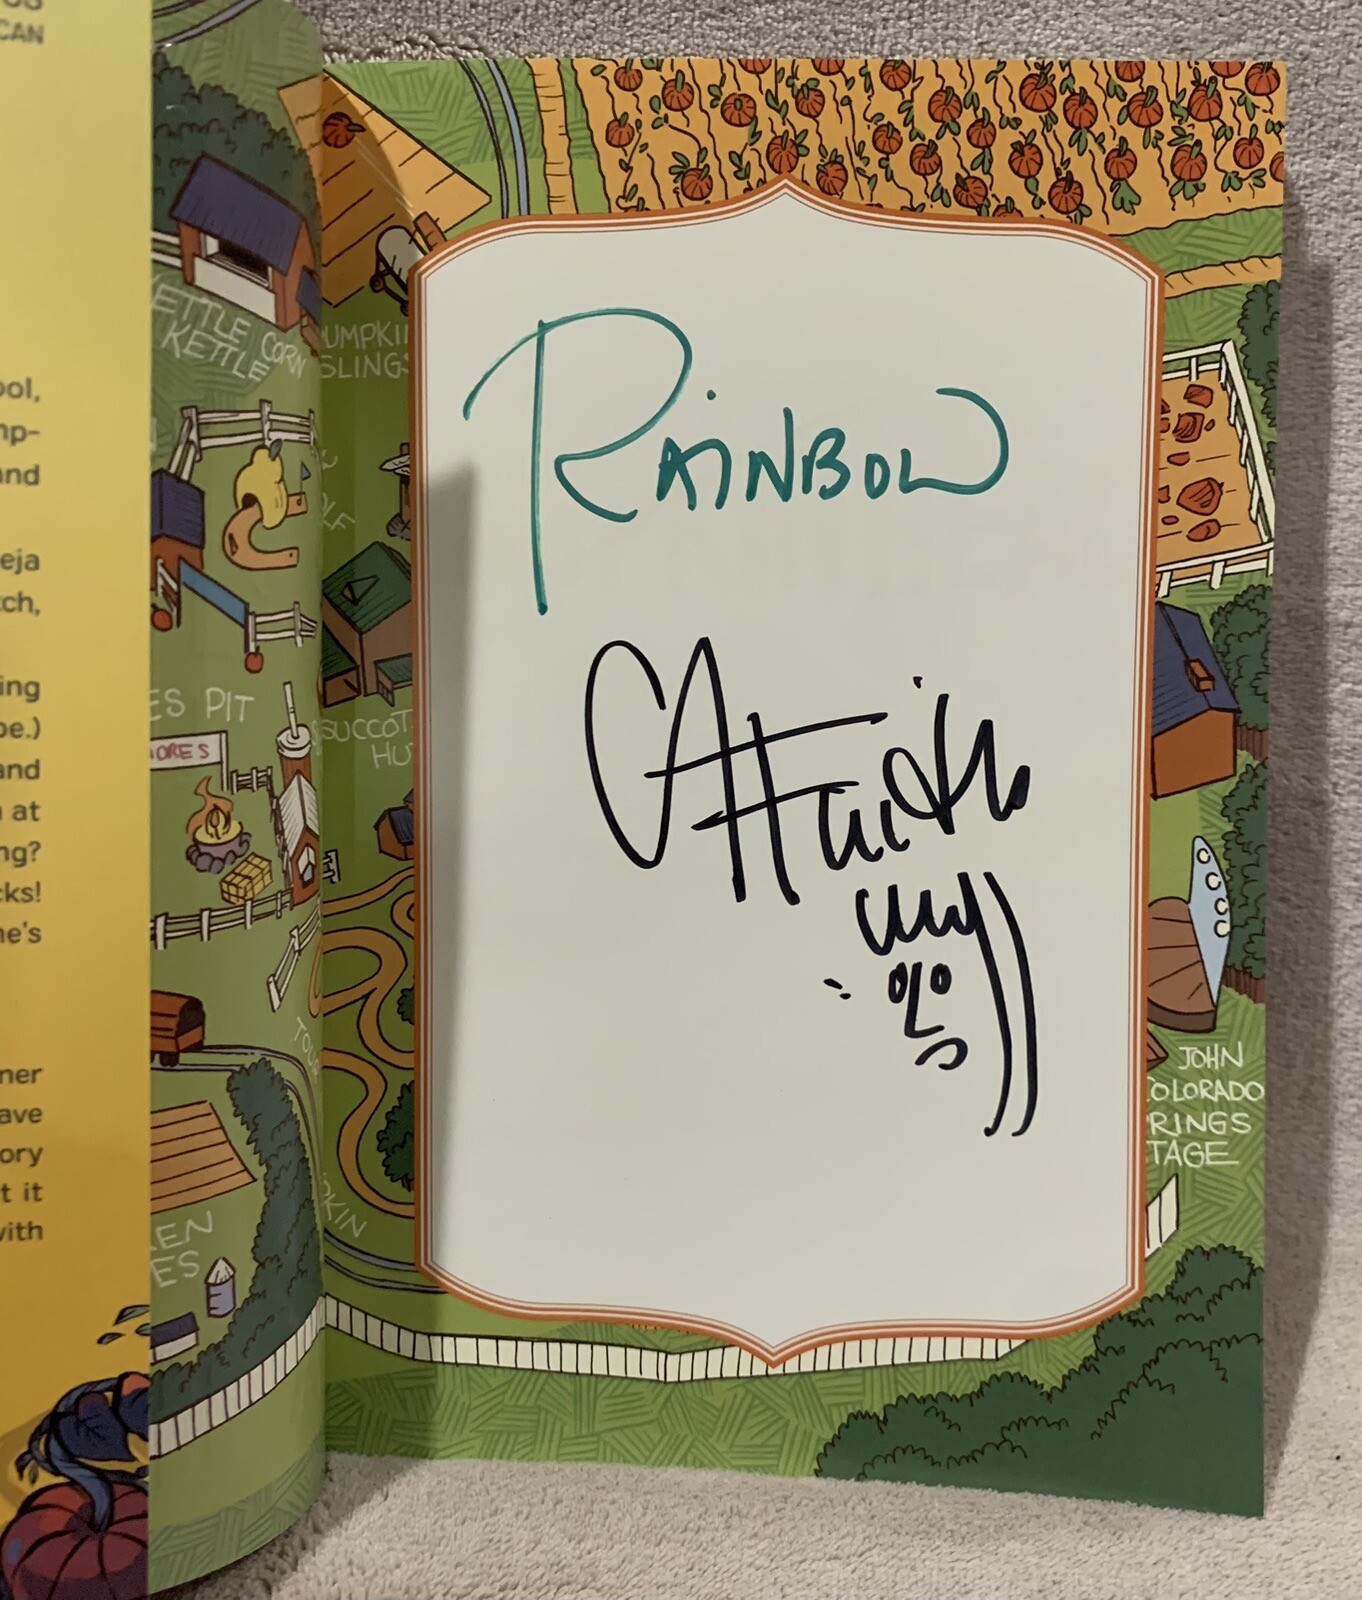 CAN
ool,
mp-
and
eja
tch,
ing
pe.)
and
n at
ng?
cks!
ne's
ner
ave
ory
t it
with
ETTLE CORN
KETTLE
UMPKIN
SLINGS
ES PIT
MORES
SUCCOT
HU
TOU
PKIN
EN
ES
RAINBOW
Faith
JOHN
COLORADO
PRINGS
TAGE